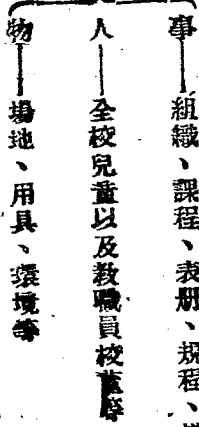 事——組織、課程、表册、規程、
人——全校兒童以及教職員校董等
物——場地、用具、環境等